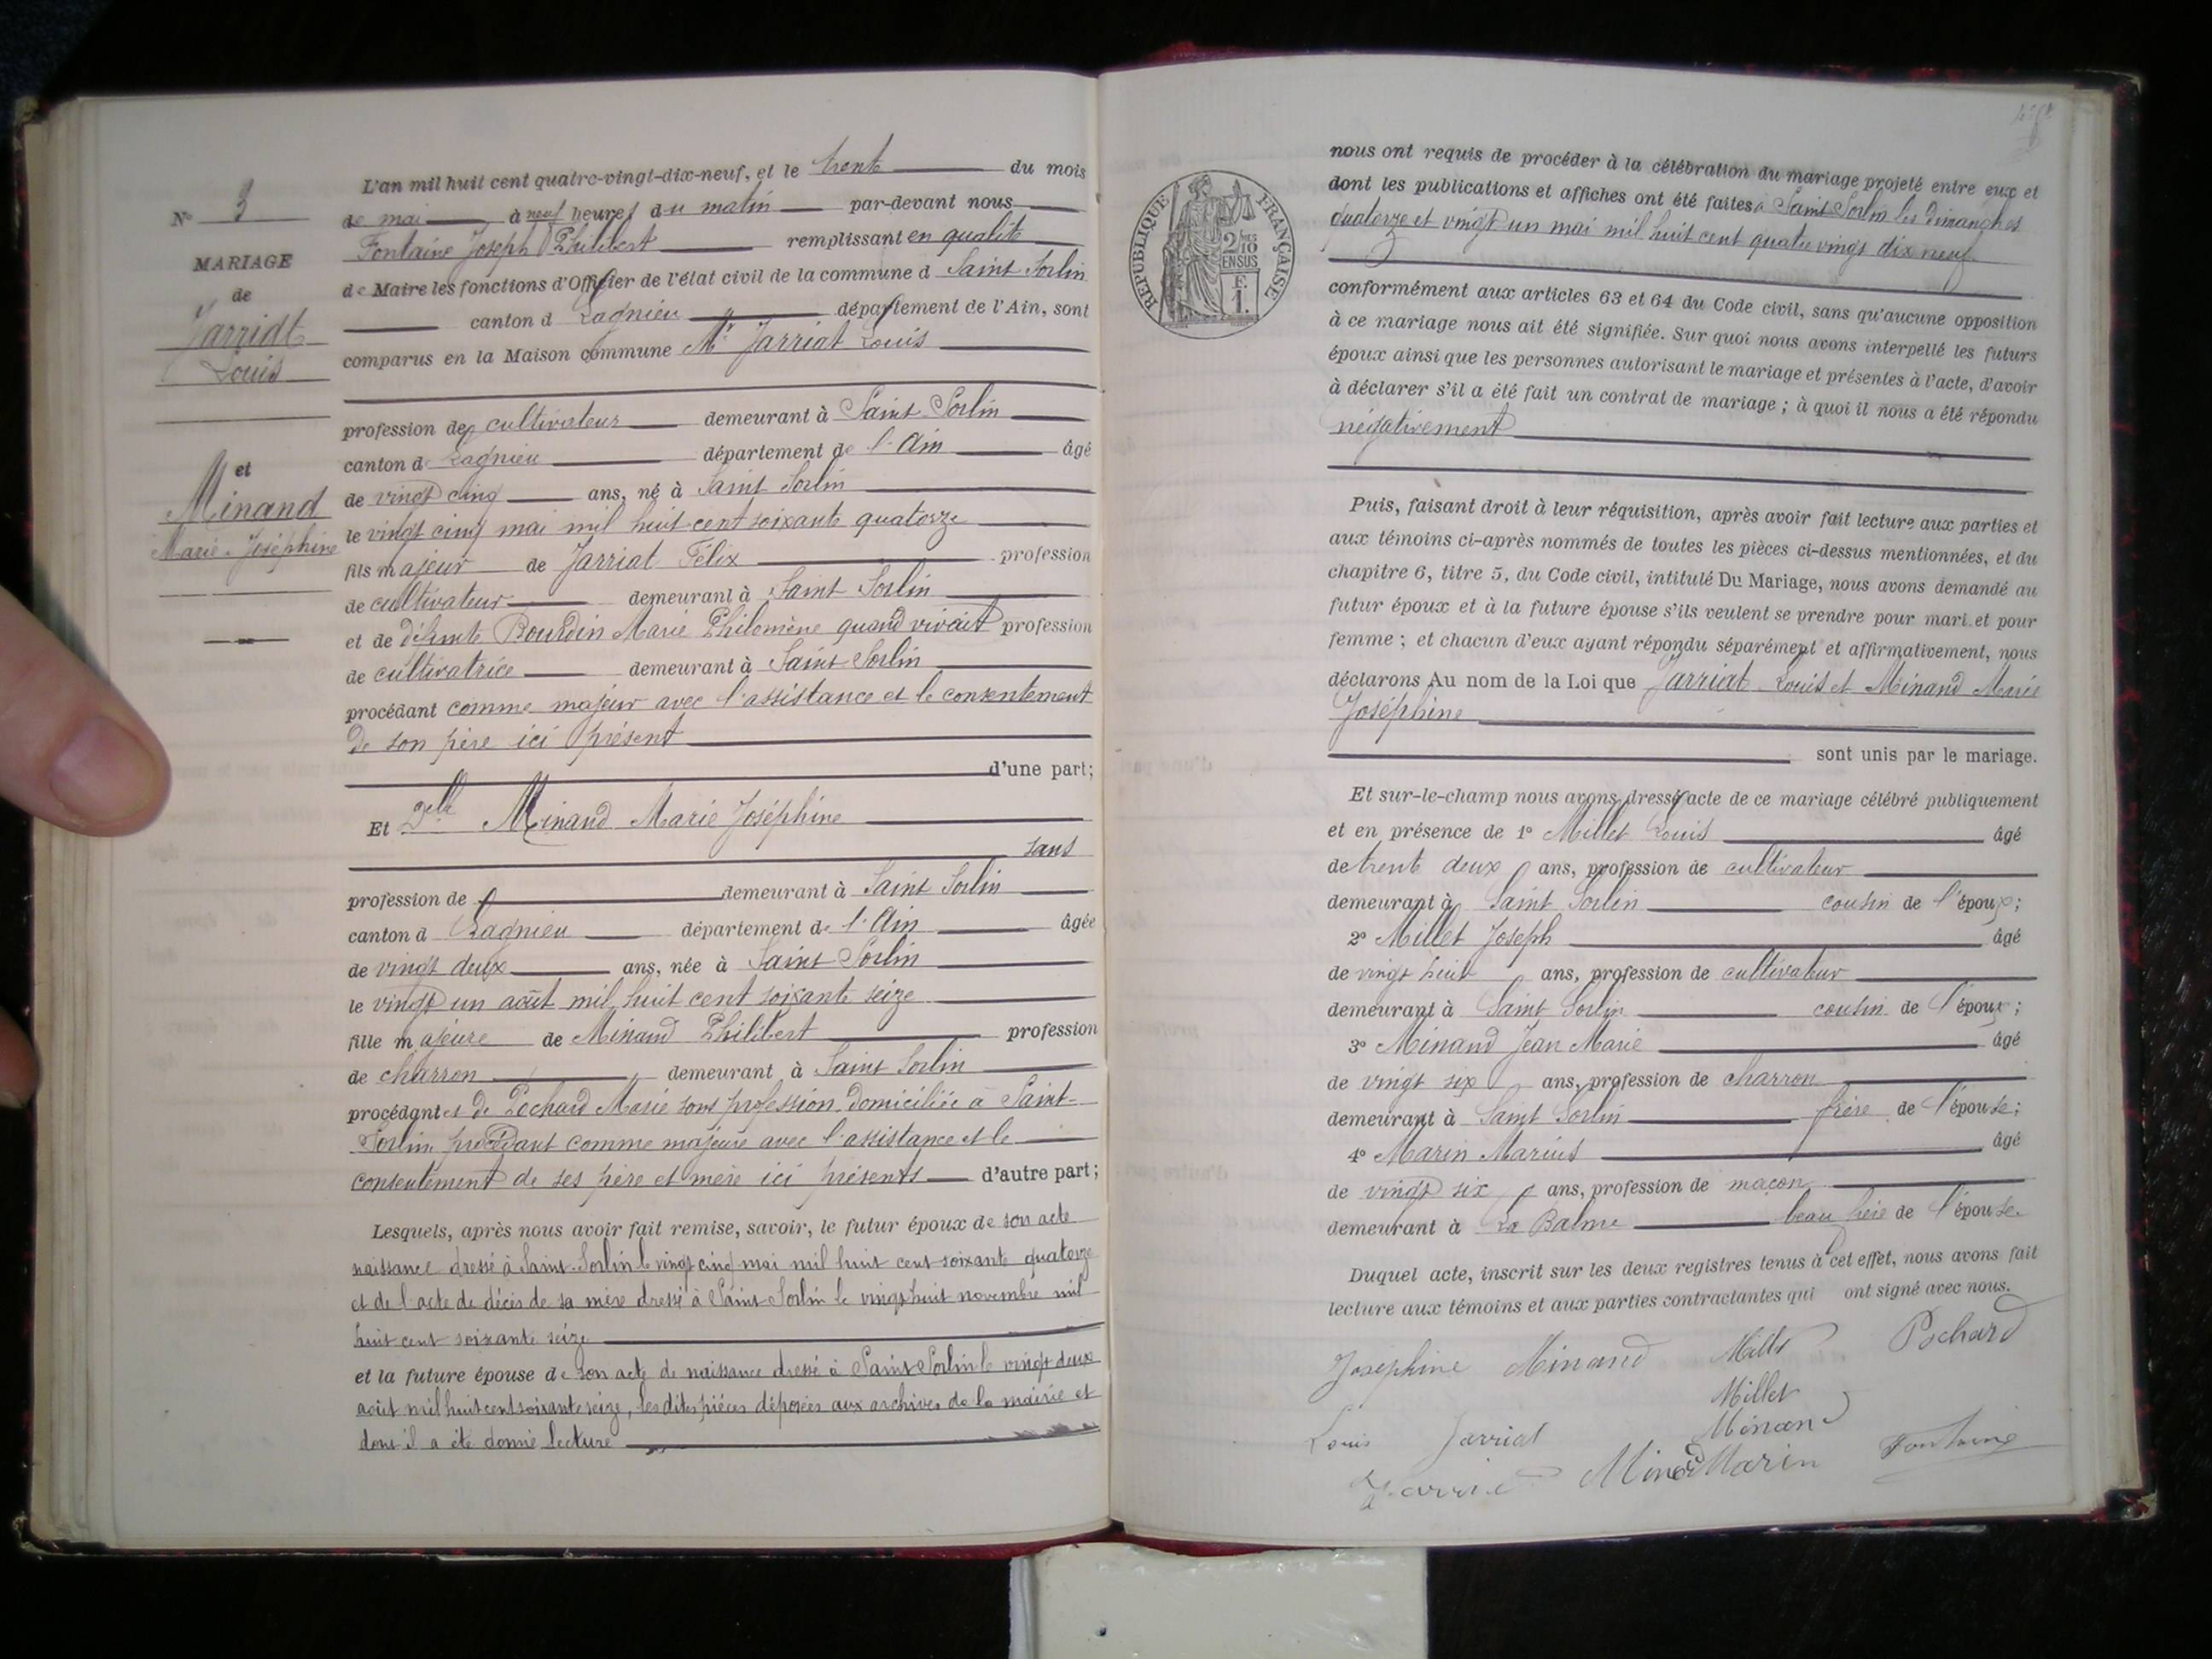 L'an mil huit cent quatre-vingt-dix-neuf, et le trente du mois
de mai à neuf heures du matin par-devant nous
Fontaine Joseph Philibert remplissant en qualité
de Maire les fonctions d'Officier de l'état civil de la commune d Saint Sorlin
canton d Lagnieu département de l'Ain, sont
comparus en la Maison commune Mr Jarriat Louis
profession de cultivateur demeurant à Saint-Sorlin
canton de Lagnieu département de l'Ain âgé
de vingt cinq ans, né à Saint Sorlin
le vingt cinq mai mil huit cent soixante quatorze
fils majeur de Jarriat Félix profession
de cultivateur demeurant à Saint Sorlin
et de défunte Bourdin Marie Philomène quand vivait profession
de cultivatrice demeurant à Saint Sorlin
procédant comme majeur avec l'assistance et le consentement
de son père ici présent
d'une part;
Et Delle Minand Marie Joséphine
sans
profession de demeurant à Saint Sorlin
canton d Lagnieu département de l'Ain âgée
de vingt deux ans, née à Saint Sorlin
le vingt un août mil huit cent soixante seize
fille majeure de Minand Philibert profession
de charron demeurant à Saint Sorlin
procédant et de Pochard Marie sans profession domiciliée à Saint-
Sorlin procédant comme majeure avec l'assistance et le
consentement de ses père et mère ici présents d'autre part;
Lesquels, après nous avoir fait remise, savoir, le futur époux de son acte
naissance dressé à Saint-Sorlin le vingt cinq mai mil huit cent soixante quatorze
et de l'acte de décès de sa mère dressé à Saint-Sorlin le vingt huit novembre mil
huit cent soixante seize
et la future épouse de son acte de naissance dressé à Saint-Sorlin le vingt deux
août mil huit cent soixante seize, les dites pièces déposées aux archives de la mairie et
dont il a été donné lecture
No 3
MARIAGE
de
Jarridt
Louis
et
Minand
Marie-Joséphine
REPUBLIQUE FRANÇAISE
2/10
EN SUS
F.
1.
nous ont requis de procéder à la célébration du mariage projeté entre eux et
dont les publications et affiches ont été faites à Saint Sorlin les dimanches
quatorze et vingt un mai mil huit cent quatre vingt dix neuf
conformément aux articles 63 et 64 du Code civil, sans qu'aucune opposition
à ce mariage nous ait été signifiée. Sur quoi nous avons interpellé les futurs
époux ainsi que les personnes autorisant le mariage et présentes à l'acte, d'avoir
à déclarer s'il a été fait un contrat de mariage ; à quoi il nous a été répondu
négativement
Puis, faisant droit à leur réquisition, après avoir fait lecture aux parties et
aux témoins ci-après nommés de toutes les pièces ci-dessus mentionnées, et du
chapitre 6, titre 5, du Code civil, intitulé Du Mariage, nous avons demandé au
futur époux et à la future épouse s'ils veulent se prendre pour mari et pour
femme ; et chacun d'eux ayant répondu séparément et affirmativement, nous
déclarons Au nom de la Loi que Jarriat Louis et Minand Marie
Joséphine
sont unis par le mariage.
Et sur-le-champ nous avons dressé acte de ce mariage célébré publiquement
et en présence de 1o Millet Louis âgé
de trente deux ans, profession de cultivateur
demeurant à Saint Sorlin cousin de l'époux;
2o Millet Joseph âgé
de vingt huit ans, profession de cultivateur
demeurant à Saint Sorlin cousin de l'époux;
3o Minand Jean Marie âgé
de vingt six ans, profession de charron
demeurant à Saint Sorlin frère de l'épouse;
4o Marin Marius âgé
de vingt six ans, profession de maçon
demeurant à La Balme beau frère de l'épouse.
Duquel acte, inscrit sur les deux registres tenus à cet effet, nous avons fait
lecture aux témoins et aux parties contractantes qui ont signé avec nous.
Joséphine Minand Millet Pochard
Millet
Louis Jarriat Minand
Minand Marin Fontaine